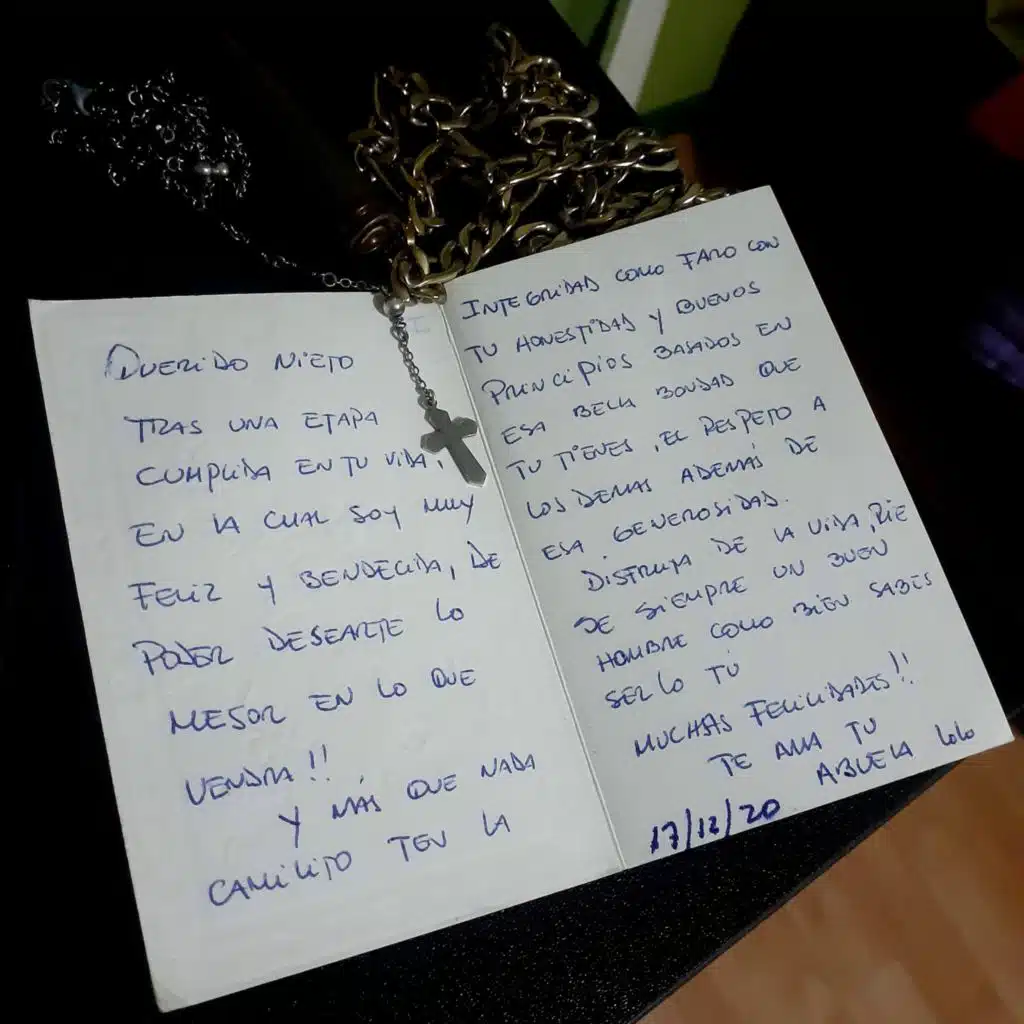 QUERIDO NIETO
TRAS UNA ETAPA
CUMPLIDA EN TU VIDA,
EN LA CUAL SOY MUY
FELIZ Y BENDECIDA, DE
PODER DESEARTE LO
MEJOR EN LO QUE
VENDRA!!
Y MÁS QUE NADA
CAMILITO TEN LA
INTEGRIDAD COMO FARO CON
TU HONESTIDAD Y BUENOS
PRINCIPIOS BASADOS EN
ESA BELLA BONDAD QUE
TU TIENES, EL RESPETO A
LOS DEMAS ADEMÁS DE
ESA GENEROSIDAD.
DISFRUTA DE LA VIDA, RIE
SE SIEMPRE UN BUEN
HOMBRE COMO BIEN SABES
SERLO TÚ
MUCHAS FELICIDADES!!
TE AMA TU
ABUELA LOLO
17/12/20